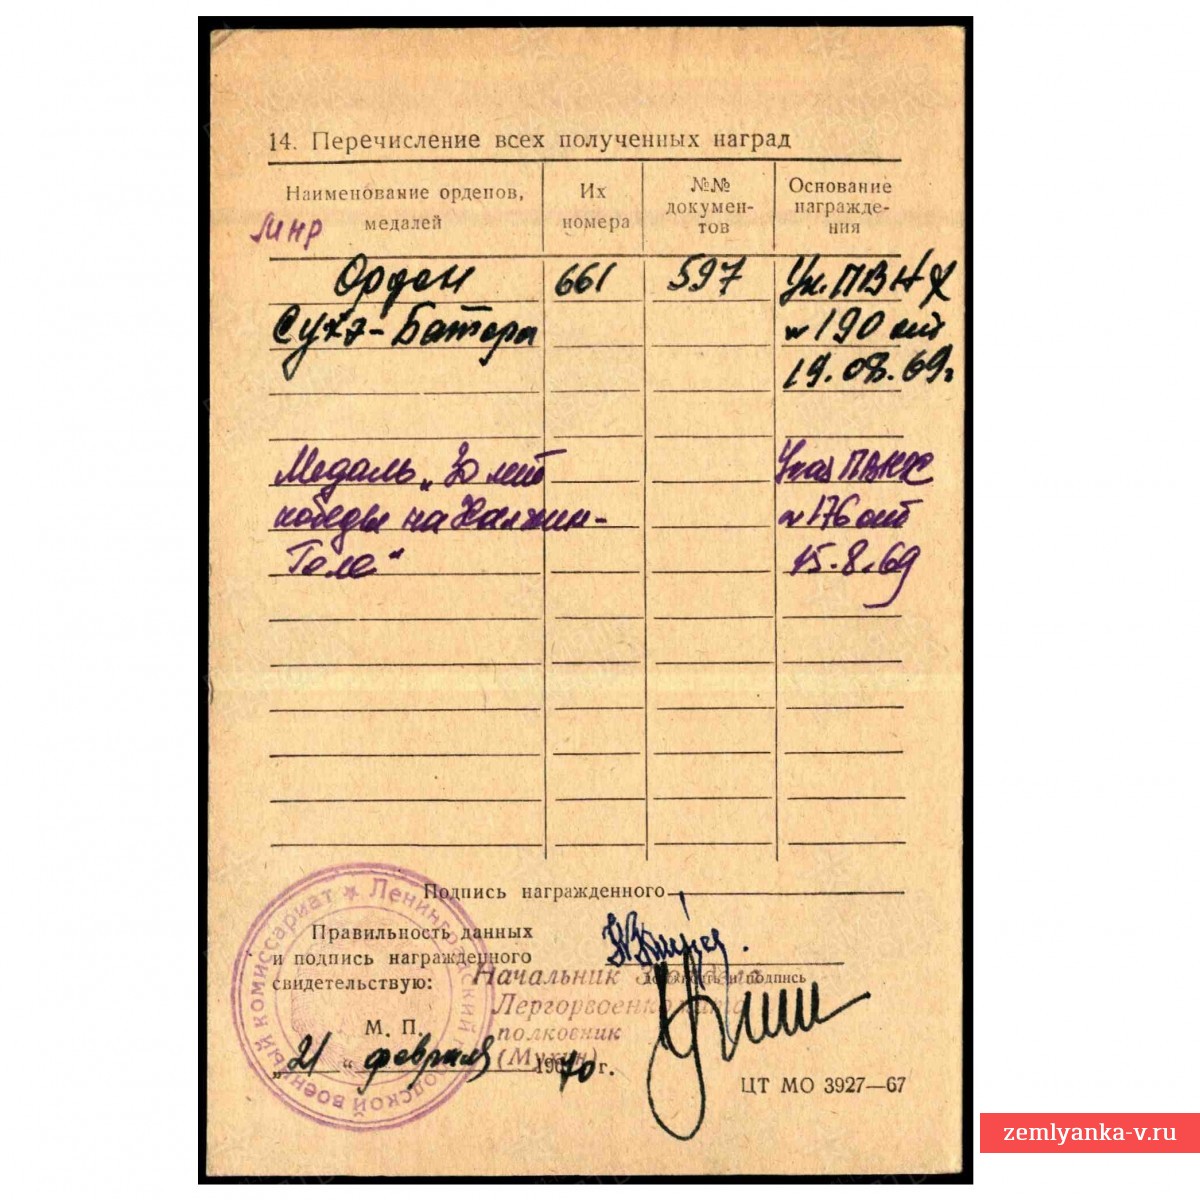 14. Перечисление всех полученных наград
Наименование орденов, медалей
Их номера
№№ докумен-тов
Основание награжде-ния
МНР
Орден 661 597 Ук. ПВНХ
Сухэ-Батора № 190 от
19.08.69г
Медаль „30 лет Указ ПВНХ
победы на Халхин- № 176 от
Голе“ 15.8.69
Подпись награжденного
Правильность данных
и подпись награжденного
свидетельствую:
должность и подпись
Начальник 3 отдела
Лергорвоенкомата
полковник
(Мухин)
М. П.
„21“ февраля 1970 г.
ЦТ МО 3927—67
Ленинградский городской военный комиссариат
zemlyanka-v.ru